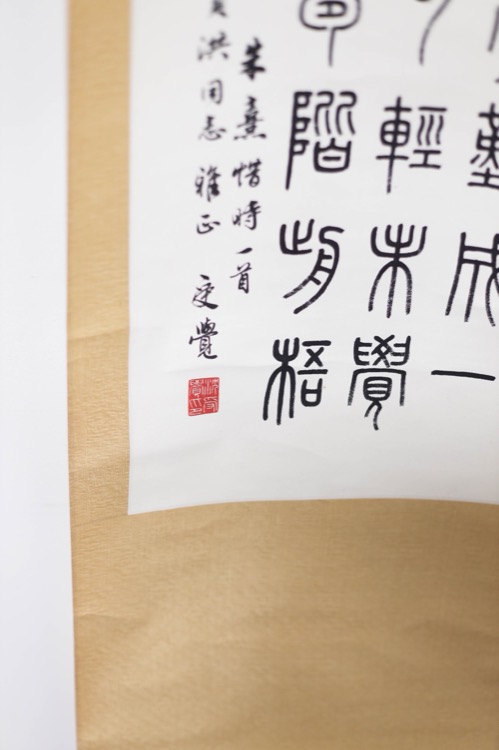 難成一
輕未覺
階前梧
朱熹惜時一首
洪同志雅正 受覺